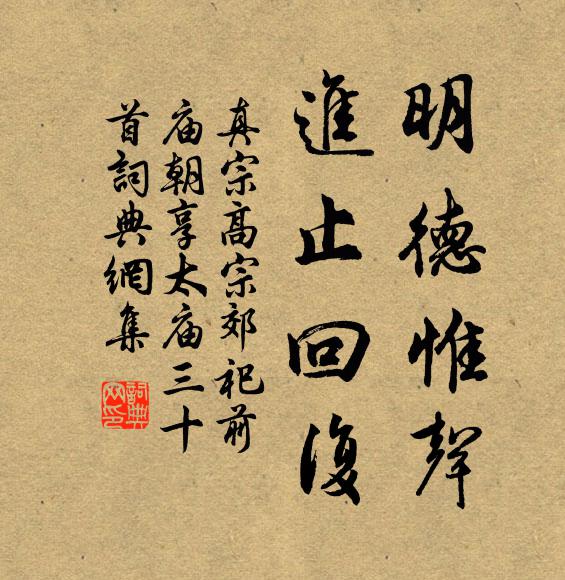 明德惟聲
進止回復
真宗高宗郊祀前
庙朝享太庙三十
首詞典網集
詞典网印